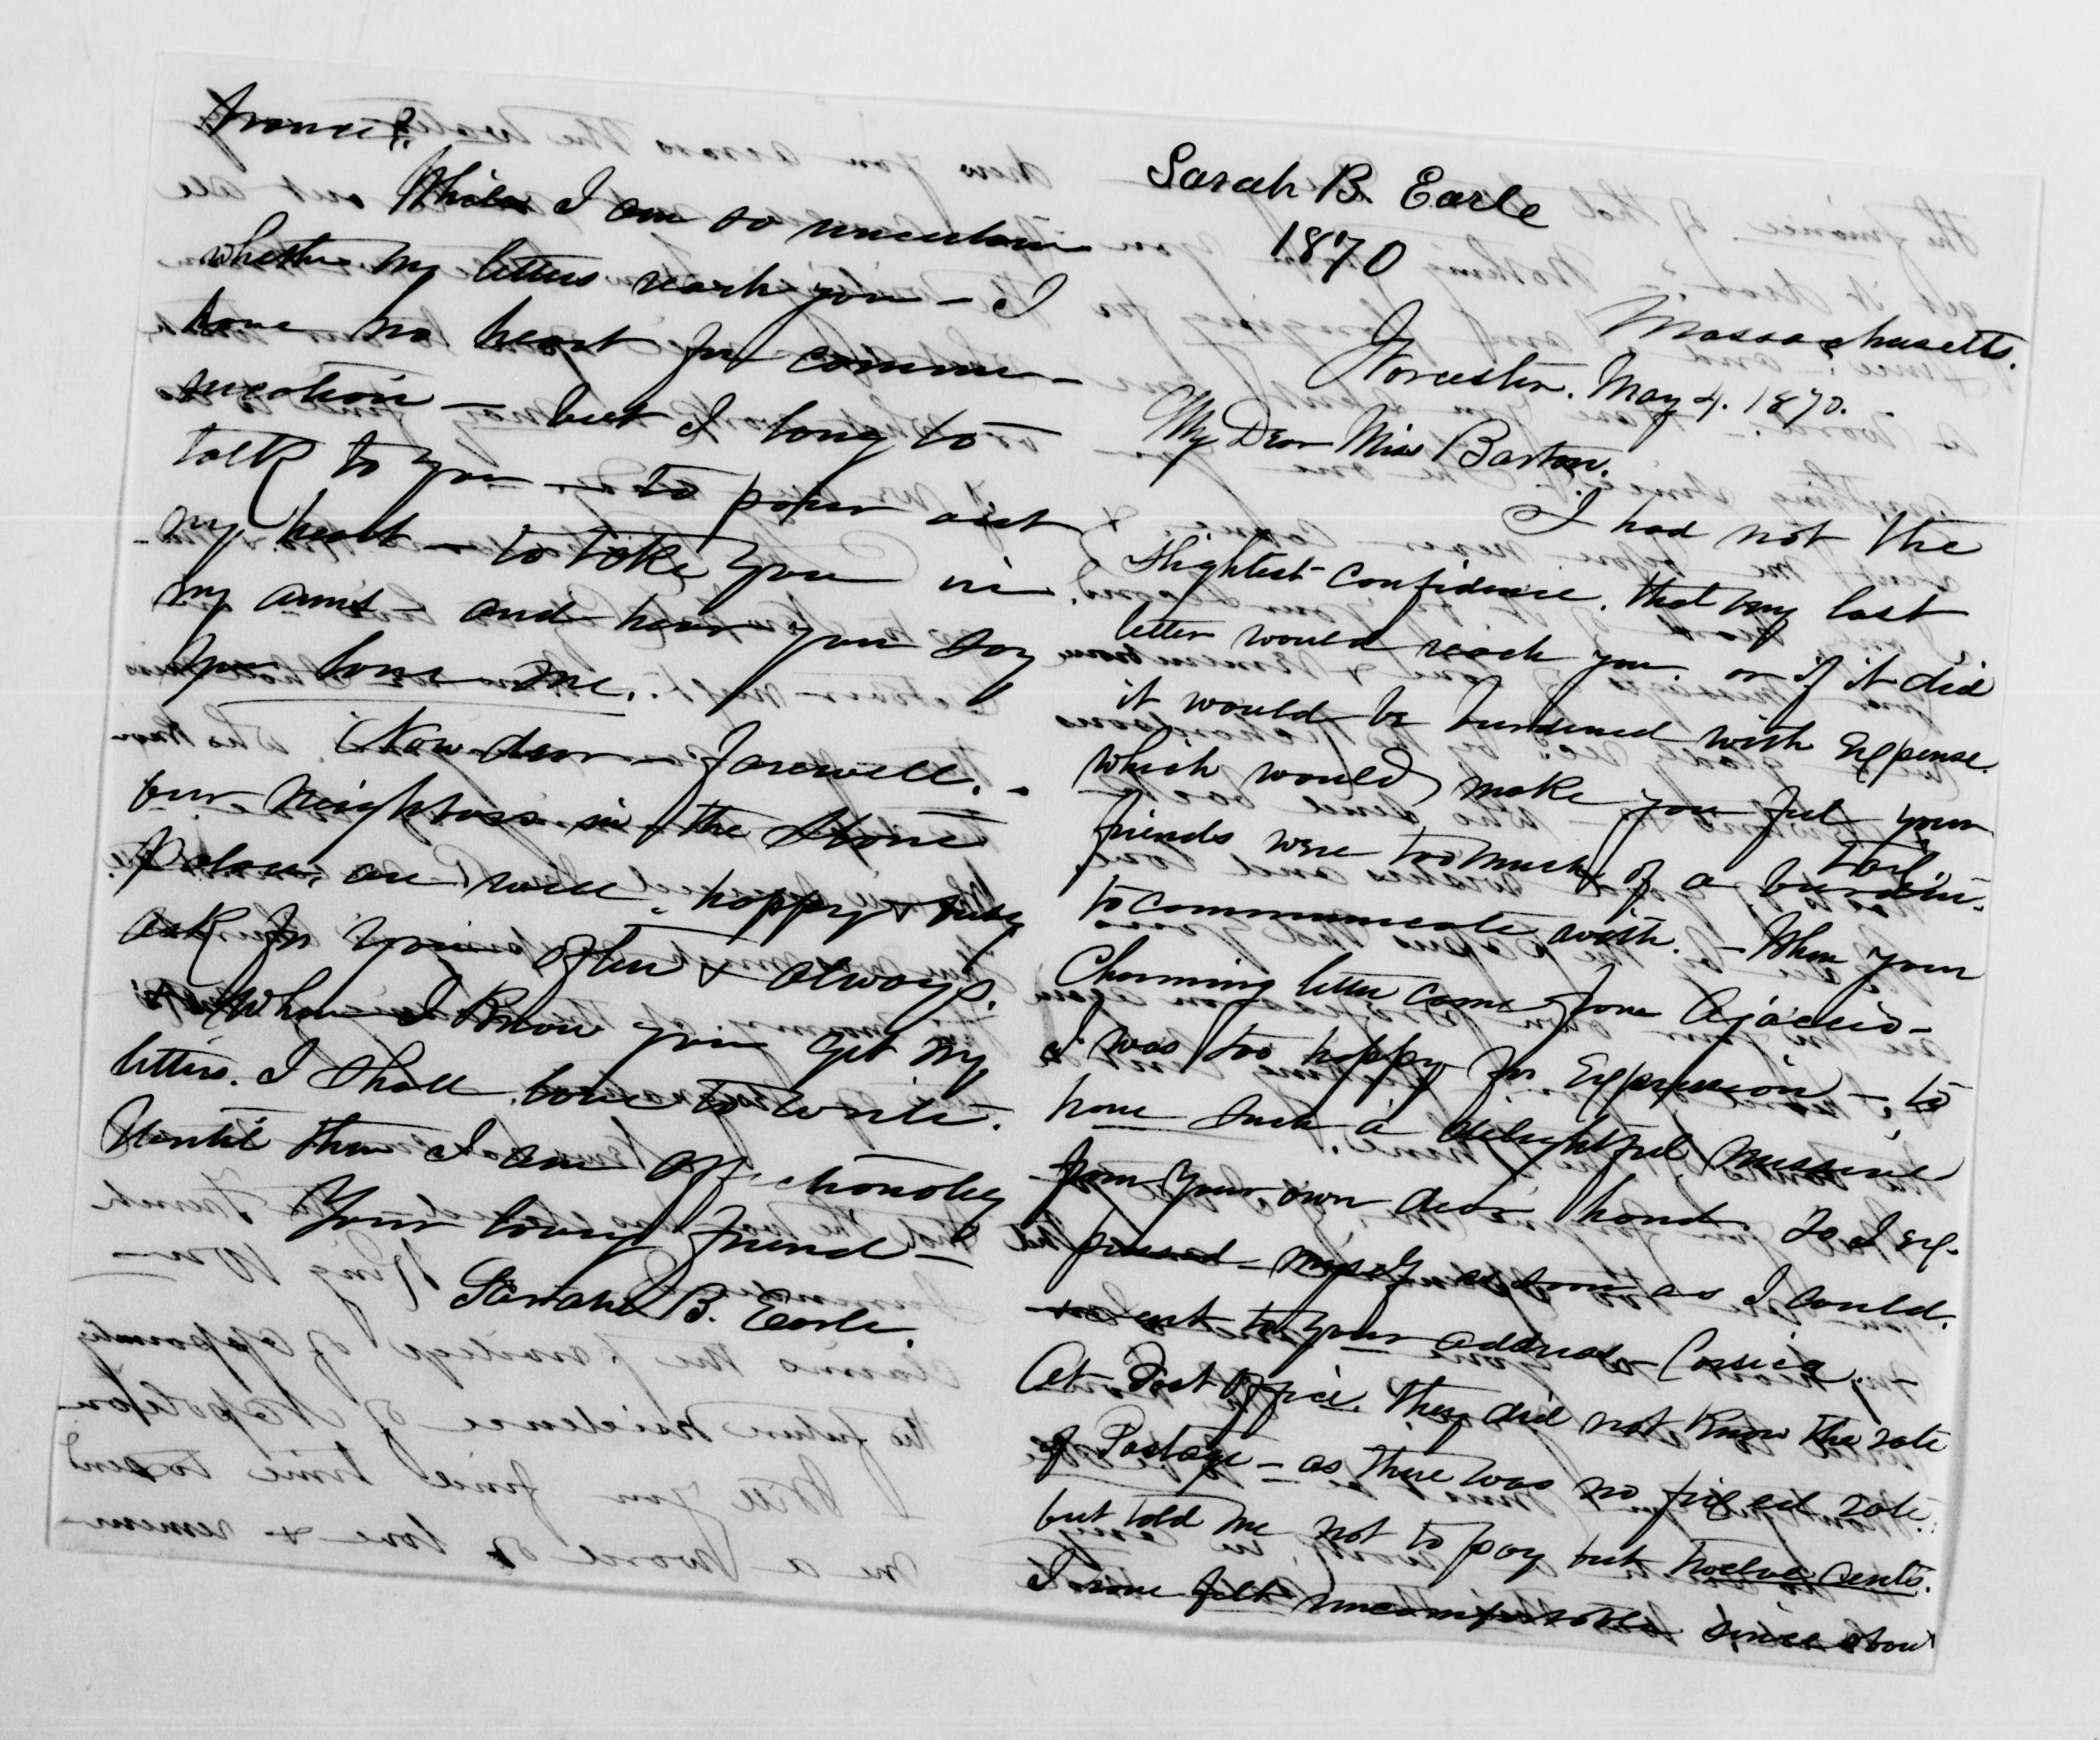 Sarah B. Earle
1870
Massachusetts.
Worcester. May 4. 1870.
My Dear Miss Barton.
I had not the
slightest confidence, that my last
letter would reach you. or if it did
it would be burdened with expense.
which would make you feel your
friends were too much of a tax
to communicate with. — When your
Charming letter came from Ajaccio —
I was too happy for expression —, to
have such a delightful missive
from your own dear hand. So I ex-
pressed myself as soon as I could.
sent to your address Corsica.
At Post Office, they did not know the rate
of Postage — as there was no fixed rate.
but told me not to pay but twelve cents.
I have felt uncomfortable since about
France?
While I am so uncertain
whether my letters reach you — I
have no heart for commu-
nication — but I long to
talk to you — to pour out
my heart — to take you in
my arms — and hear you say
you love me.
Now dear — farewell. -
our neighbors in the Stone
Palace, are well, happy & busy
ask for you often & always.
When I know you get my
letters. I shall love to write.
Until then I am affectionately
Your loving friend —
Sarah B. Earle.